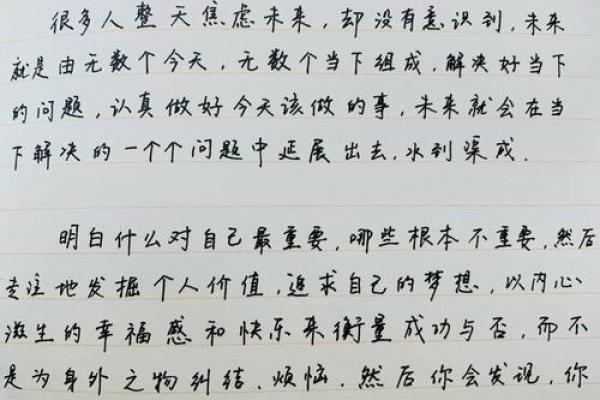 很多人整天焦虑未来，却没有意识到，未来
就是由无数个今天，无数个当下组成．解决好当下
的问题，认真做好今天该做的事，未来就会在当
下解决的一个个问题中延展出去，水到渠成．
明白什么对自己最重要，哪些根本不重要，然后
专注地发掘个人价值，追求自己的梦想，以内心
滋生的幸福感和快乐来衡量成功与否，而不
是为身外之物纠结、烦恼．然后你会发现，你